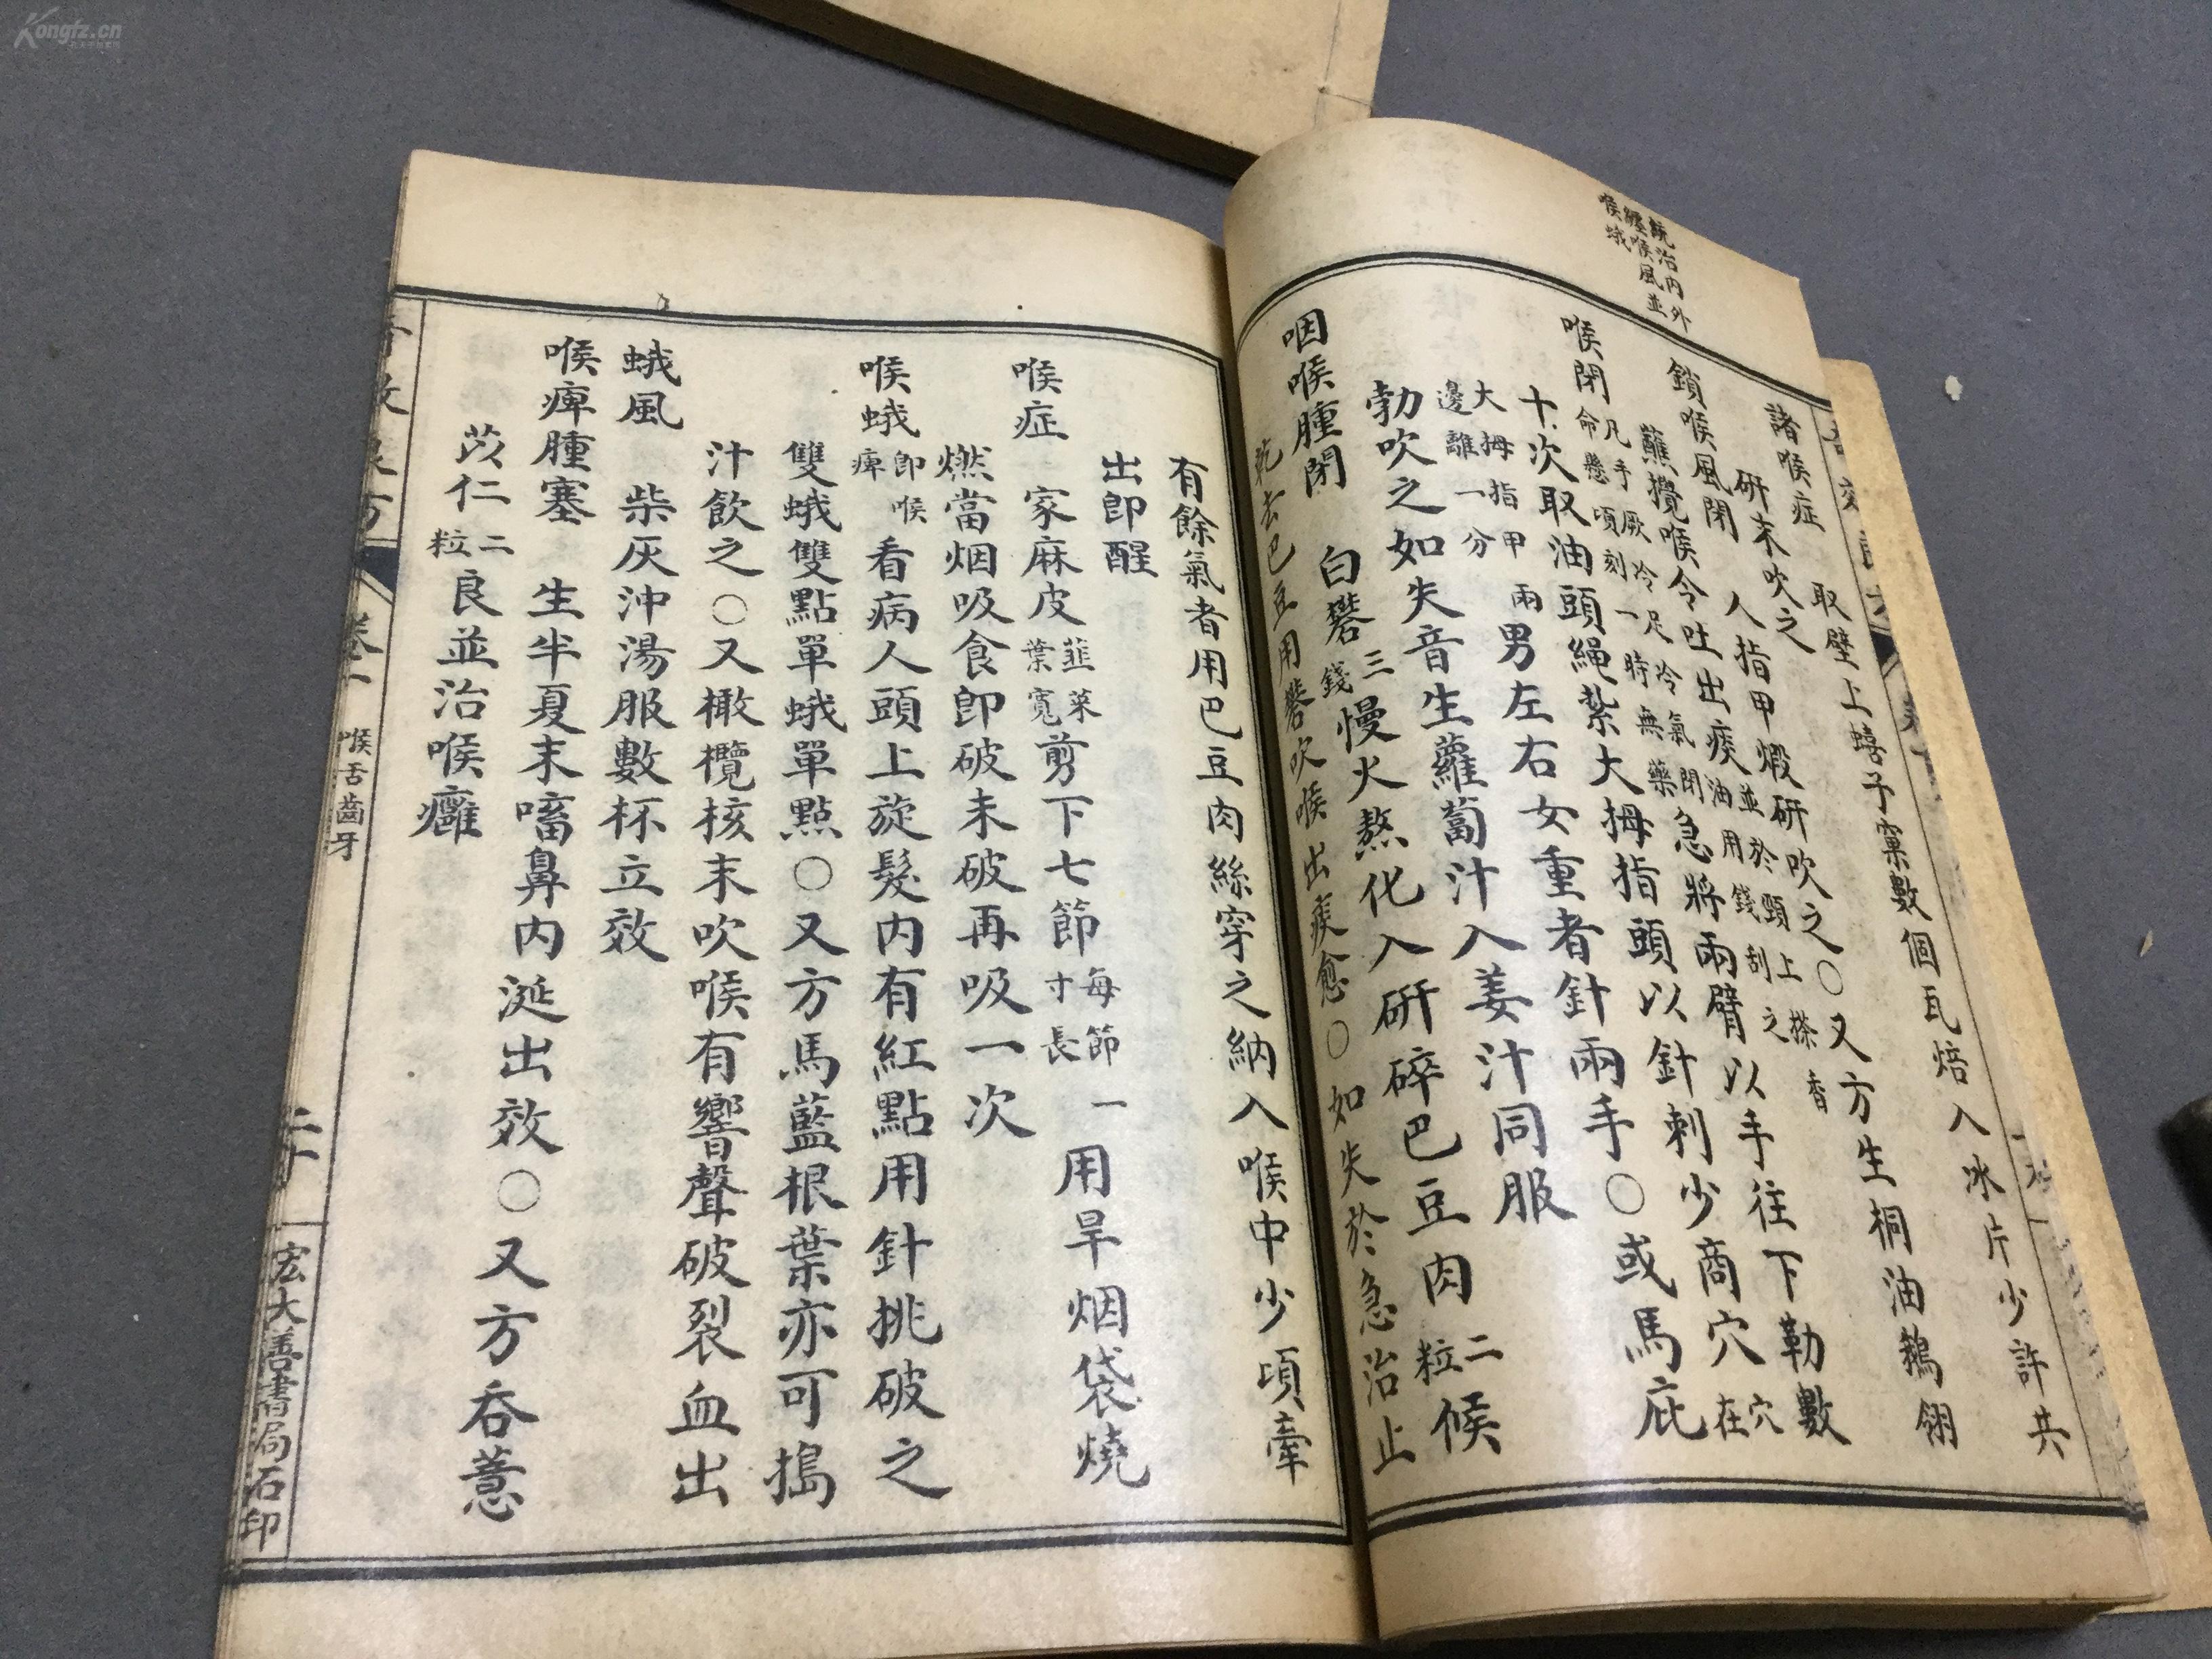 Kongfz.cn
統治內外
纏喉風並
喉蛾
諸喉症 取壁上蟢子窠數個瓦焙入冰片少許共
研末吹之 人指甲煅研吹之○又方生桐油鵝翎
蘸攪喉令吐出痰油並用於錢頸刮上之搽香
鎖喉風閉 急將兩臂以手往下勒數
喉閉 凡手厥冷足冷氣閉命懸頃刻一時無藥
十次取油頭繩紮大拇指頭以針刺少商穴 穴在
大拇指甲邊離一分 兩男左右女重者針兩手○或馬庇
勃吹之如失音生蘿蔔汁入姜汁同服
咽喉腫閉 白礬三錢慢火熬化入研碎巴豆肉二粒候
乾去巴豆用礬吹喉出痰愈○如失於急治止
有餘氣者用巴豆肉絲穿之納入喉中少頃牽
出即醒
喉症 家麻皮韮菜葉寬剪下七節每節一寸長用旱烟袋燒
燃當烟吸食即破未破再吸一次
喉蛾即喉痺 看病人頭上旋髮內有紅點用針挑破之
雙蛾雙點單蛾單點○又方馬藍根葉亦可搗
汁飲之○又橄欖核末吹喉有響聲破裂血出
蛾風 柴灰沖湯服數杯立效
喉痺腫塞 生半夏末㗜鼻內涎出效○又方吞薏
苡仁二粒良並治喉癰
喉舌齒牙
宏大善書局石印